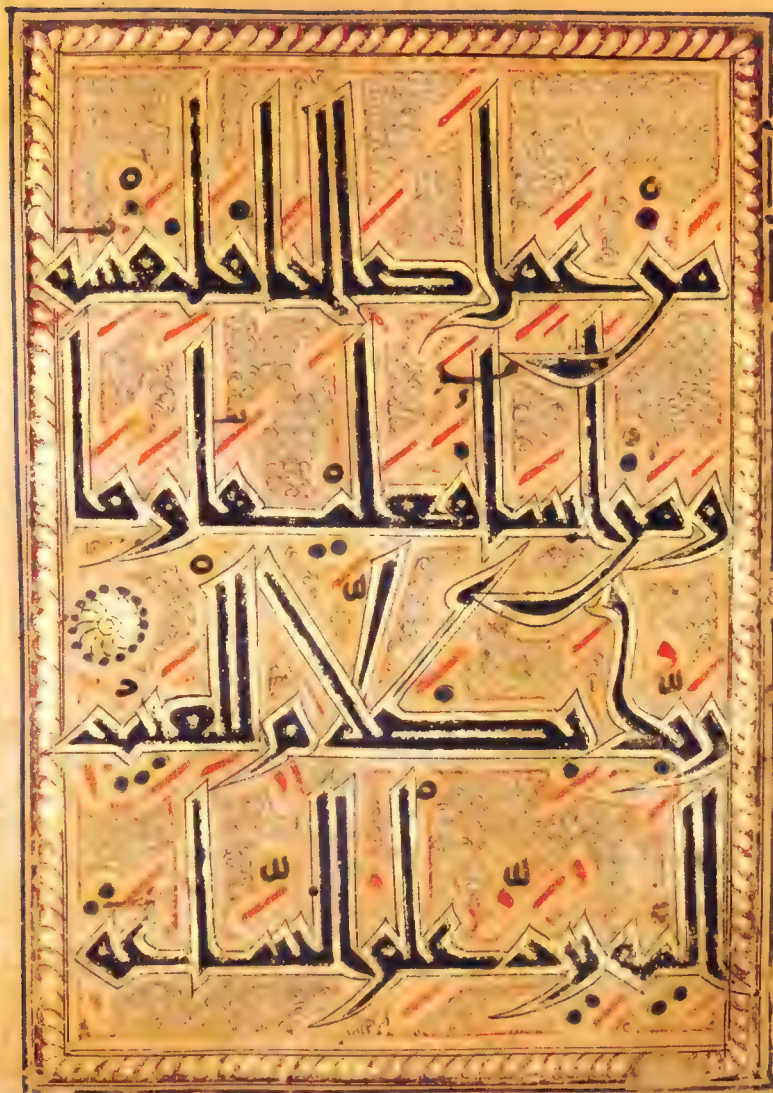 مَنْ عَمِلَ صَالِحًا فَلِنَفْسِهِ
وَمَنْ أَسَاءَ فَعَلَيْهَا وَمَا
رَبُّكَ بِظَلَّامٍ لِلْعَبِيدِ
إِلَيْهِ يُرَدُّ عِلْمُ السَّاعَةِ